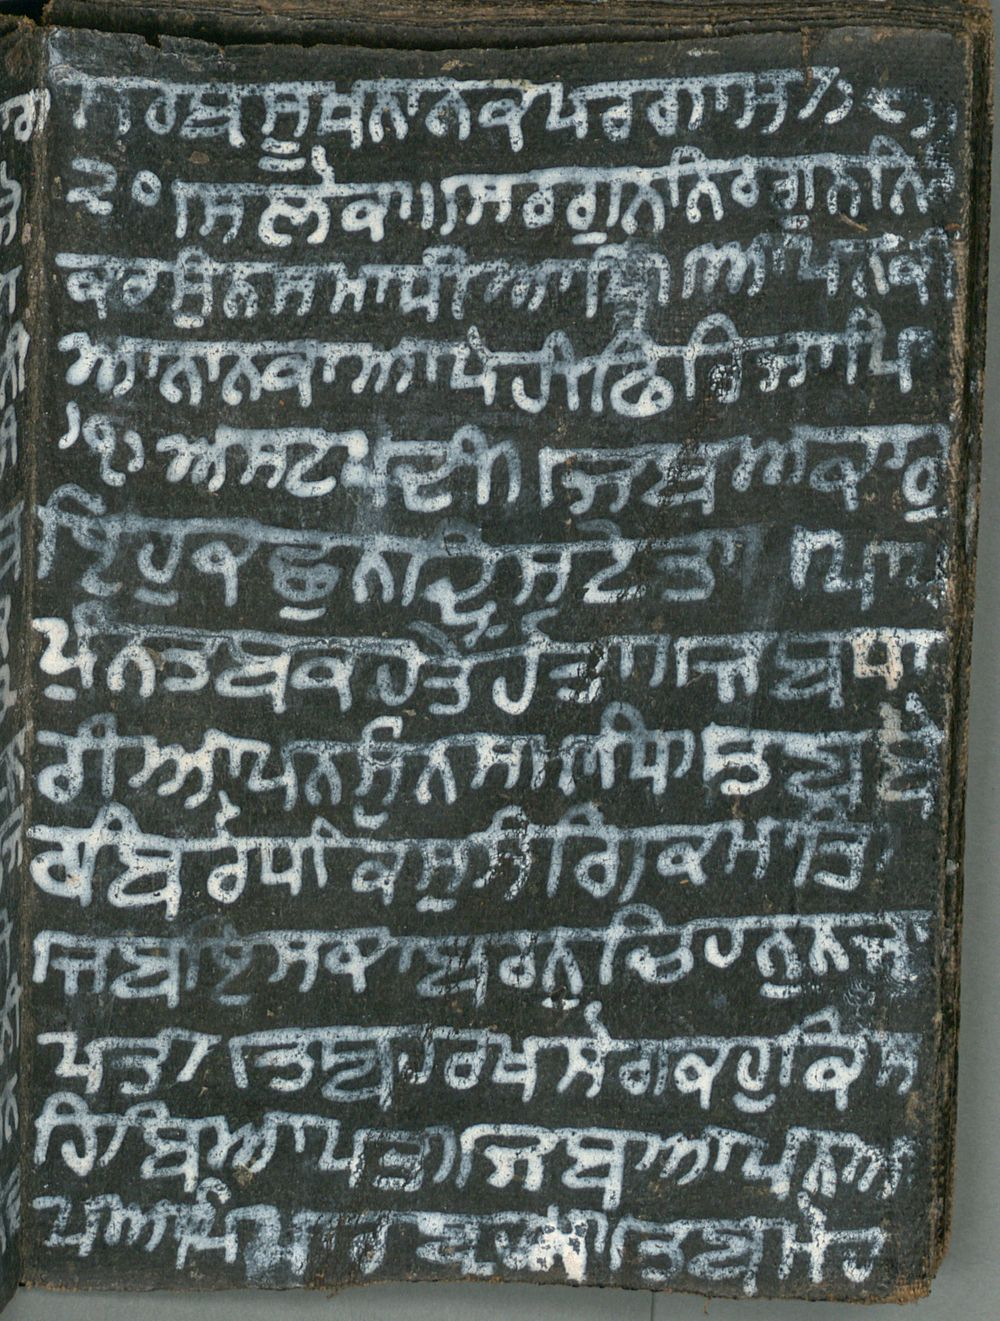 ਸਰਬ ਸੂਖ ਨਾਨਕ ਪਰਗਾਸ ੮
੨੦ ਸਲੋਕਾ। ਸਰਗੁਨ ਨਿਰਗੁਨ ਨਿ
ਕਾਰ ਸੁਨ ਸਮਾਧੀ ਆਪਿ। ਆਪਨ ਕੀ
ਆ ਨਾਨਕਾ ਆਪੇ ਹੀ ਫਿਰਿ ਜਾਪਿ
।੧। ਅਸਟਪਦੀ। ਜਬ ਅਕਾਰੁ
ਇਹੁ ਕਛੁ ਨ ਦ੍ਰਿਸਟੇਤਾ। ਪਾਪ
ਪੁੰਨ ਤਬ ਕਹ ਤੇ ਹੋਤਾ। ਜਬ ਧਾ
ਰੀ ਆਪਨ ਸੁੰਨ ਸਮਾਧਿ। ਤਬ ਬੈ
ਰ ਬਿਰੋਧ ਕਿਸੁ ਸੰਗਿ ਕਮਾਤਿ
ਜਬ ਇਸ ਕਾ ਬਰਨੁ ਚਿਹਨੁ ਨ ਜਾ
ਪਤ। ਤਬ ਹਰਖ ਸੋਗ ਕਹੁ ਕਿਸ
ਹਿ ਬਿਆਪਤ। ਜਬ ਆਪਨ ਆ
ਪ ਆਪਿ ਪਾਰਬ੍ਰਹਮ। ਤਬ ਮੋਹ